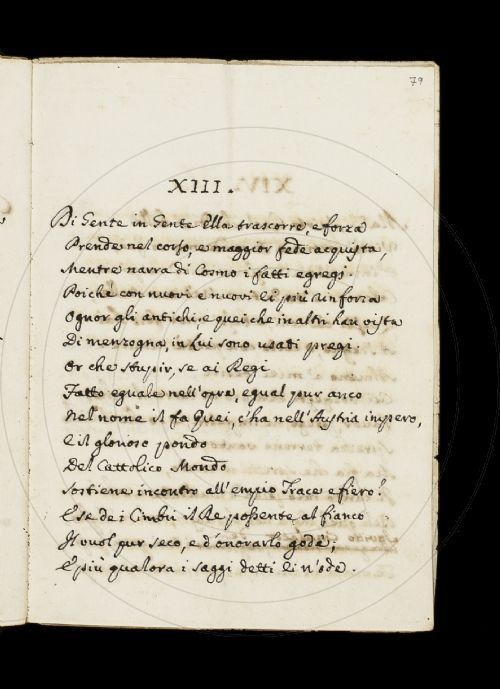 79
XIII.
Di Gente in Gente Ella trascorre, e forza
Prende nel corso, e maggior fede acquista,
Mentre narra di Cosmo i fatti egregj.
Poichè con nuovi e nuovi Ei più rinforza
Ognor gli antichi, e quei che in altri han vista
Di menzogna, in Lui sono usati pregi.
Or che stupir, se ai Regi
Fatto eguale nell'opra, egual pur anco
Nel nome il fa Quei, c'ha nell'Austria impero,
E il glorioso pondo
Del Cattolico Mondo
Sostiene incontro all'empio Trace e fiero?
E se de i Cimbri il Re possente al fianco
Il vuol pur seco, e d'onorarlo gode;
E più qualora i saggi detti Ei n'ode.